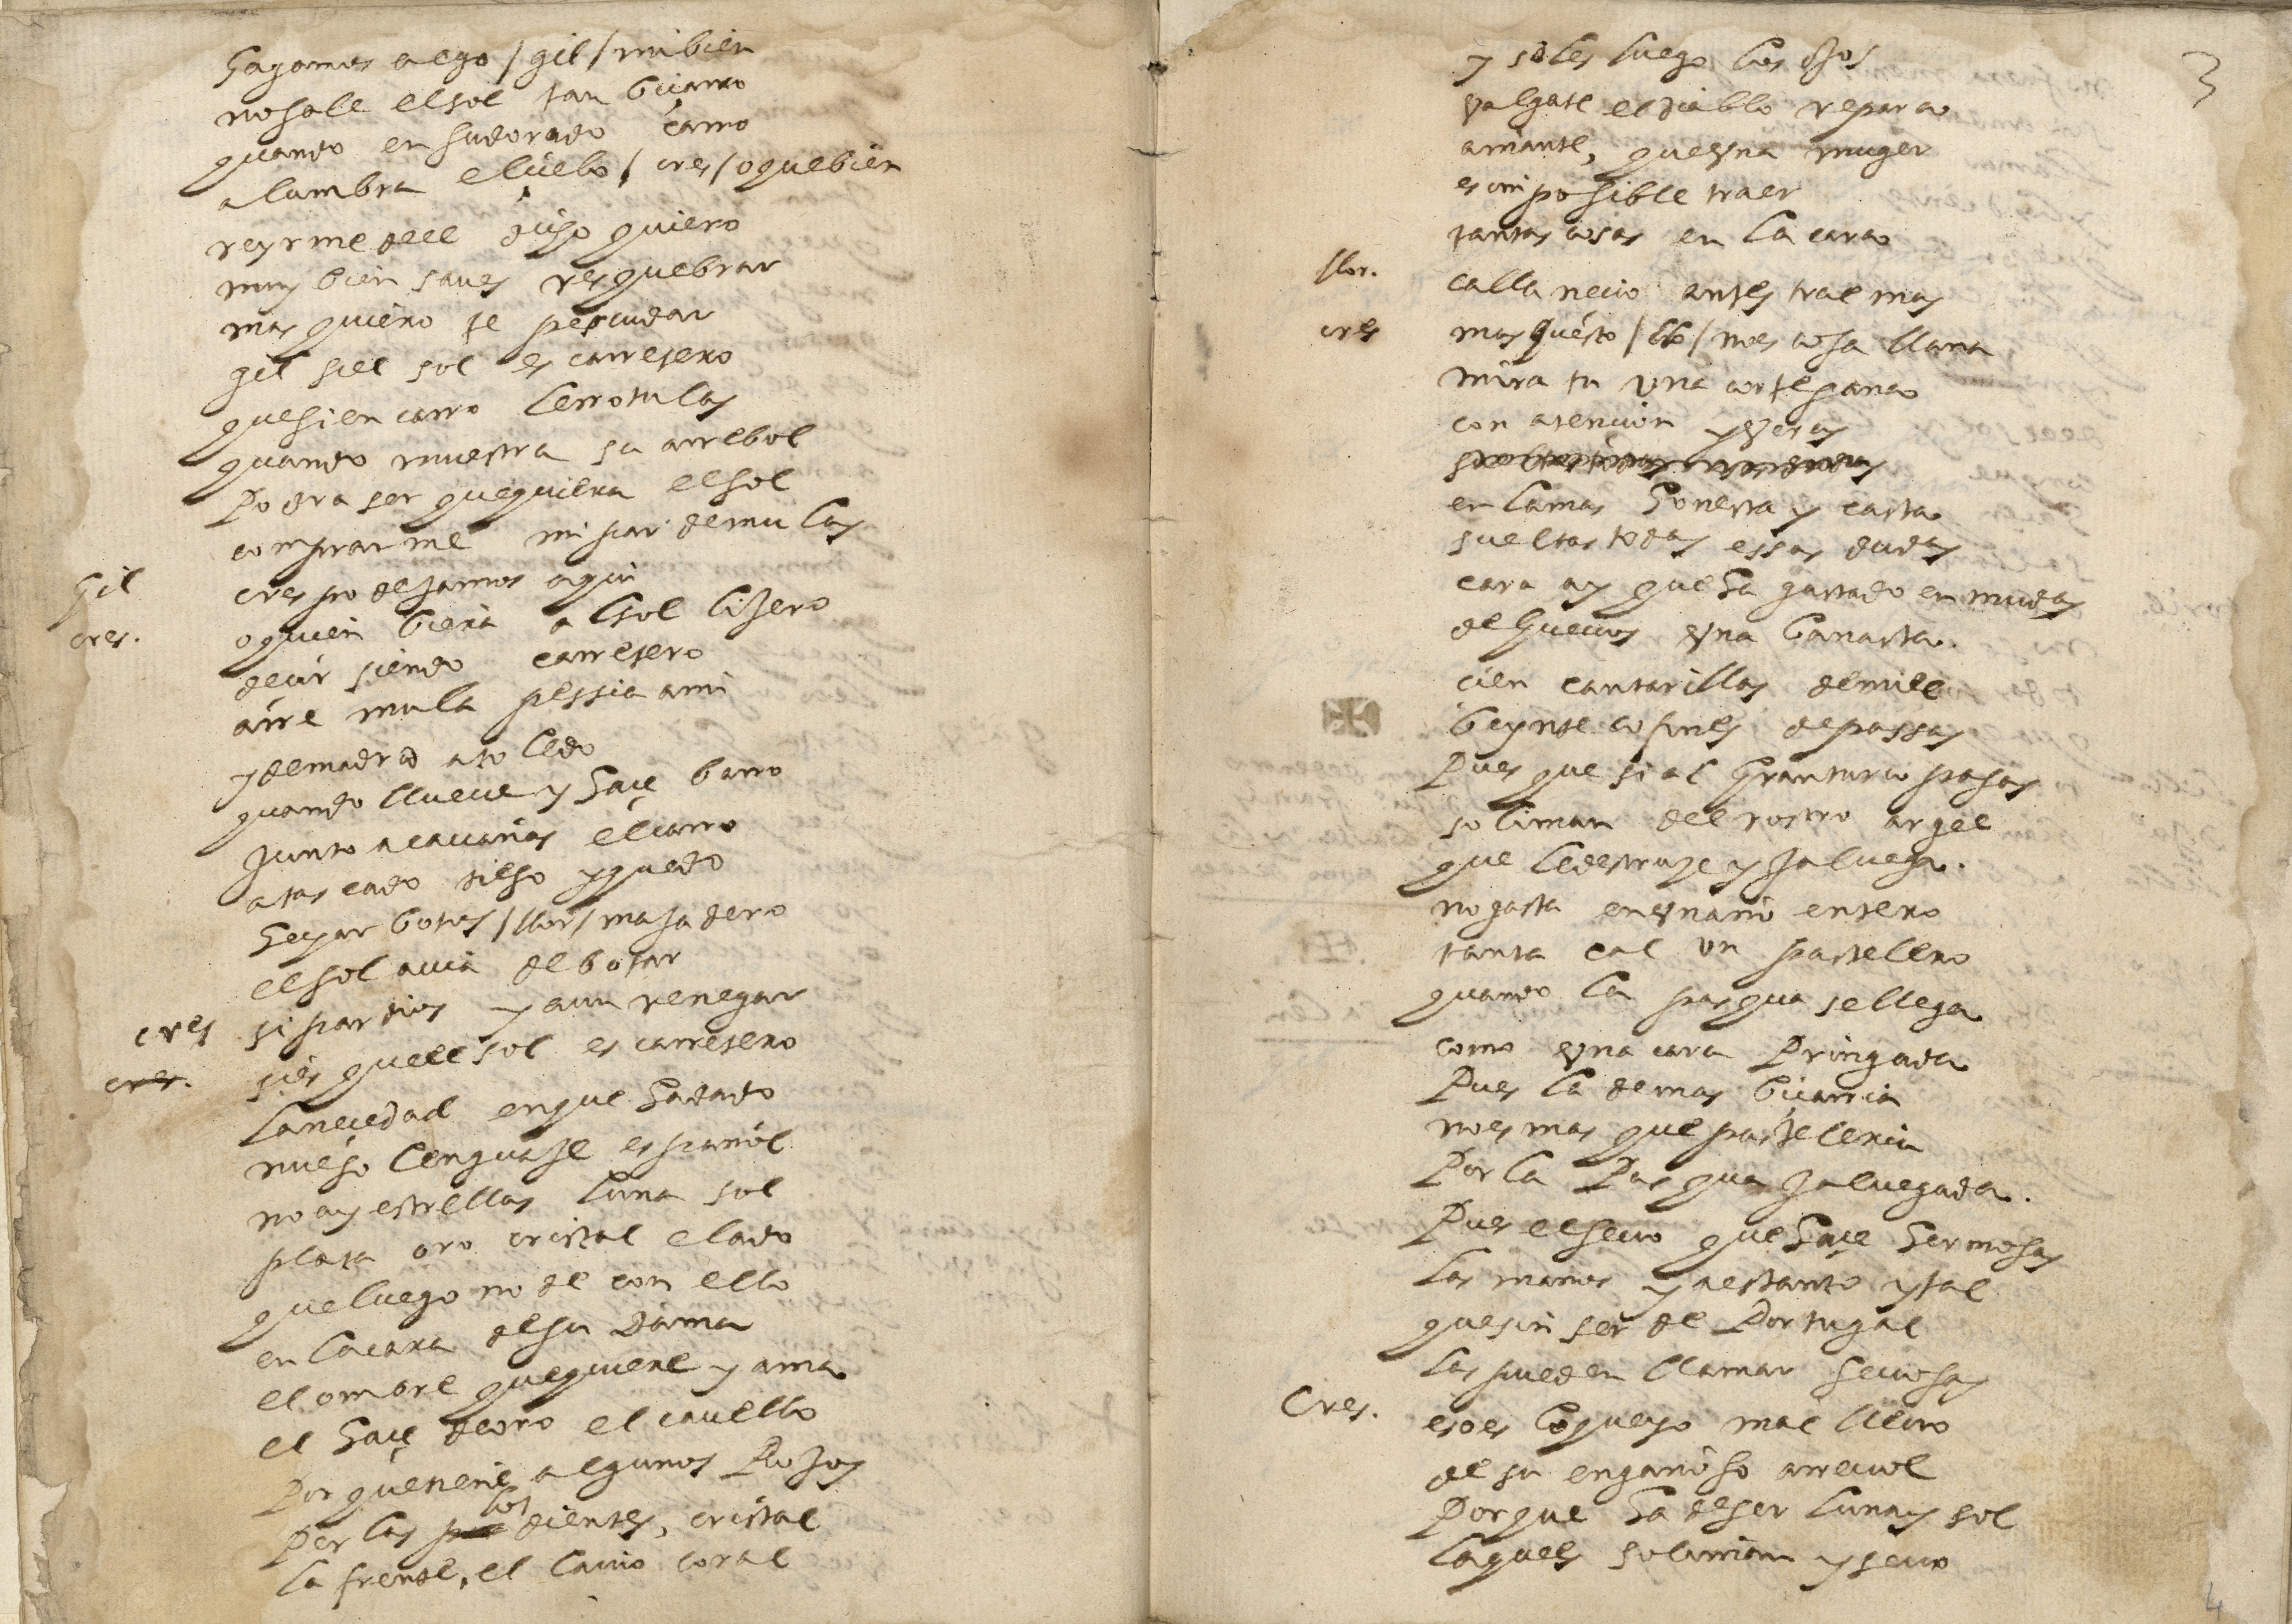 hagamos algo / gil / mi bien
no sale el sol tan biçarro
quando en su dorado carro
alumbra el çielo / cres / o que bien
reyrme del dijo quiero
muy bien saues resquebrar
mas quiero te pescudar
gil si el sol es carretero
que si en carro le rotulas
quando muestra su arrebol
Podra ser que quiera el sol
comprarme mi par de mulas
Gil crespo dejamos aqui
cres. o quien biera al sol lijero
deçir siendo carretero
arre mula pessia a mi
y de madrid a toledo
quando llueue y haçe barro
junto a cauañas el carro
atascado tieso y quedo
hechar botos / flor / majadero
el sol auia de botar
cres si par dios y aun renegar
cres. si es que el sol es carretero
la neçedad en que ha dado
nueso lenguaje español
no ay estrellas luna sol
plata oro cristal elado
que luego no de con ello
en la cara de su dama
el ombre que quiere y ama
el haçe de oro el cauello
Porque tiene algunos Rojos
Perlas los dientes, cristal
la frente, el lauio coral
3
y soles luego los ojos
valgate el diablo repara
amante, que vna muger
es imposible traer
tantas cosas en la cara
flor. calla neçio antes trae mas
cres mas questo / flo / no es cosa llana
mira tu vna cortesana
con atencion y veras
en la mas honesta y casta
sueltas todas essas dudas
cara ay que ha gastado en mudas
de hueuos vna banasta.
cien cantarillas de miel
beynte cofines de passas
Pues que si al gran turco pasas
soliman del rostro argel
que le destruye y jaluega.
no gasta en vn año entero
tanta cal vn pastelero
quando la pasqua se llega
como vna cara Pringada
Pues la demas biçarria
no es mas que pasteleria
Por la Pasqua jaluegada.
Pues el seuo que haçe hermosas
las manos y aestanto y tal
que sin ser de Portugal
las pueden llamar seuosas
Cres. eso es lo que yo mal lleuo
de su engañoso arreuol
Porque ha de ser luna y sol
la que es soliman y seuo
4